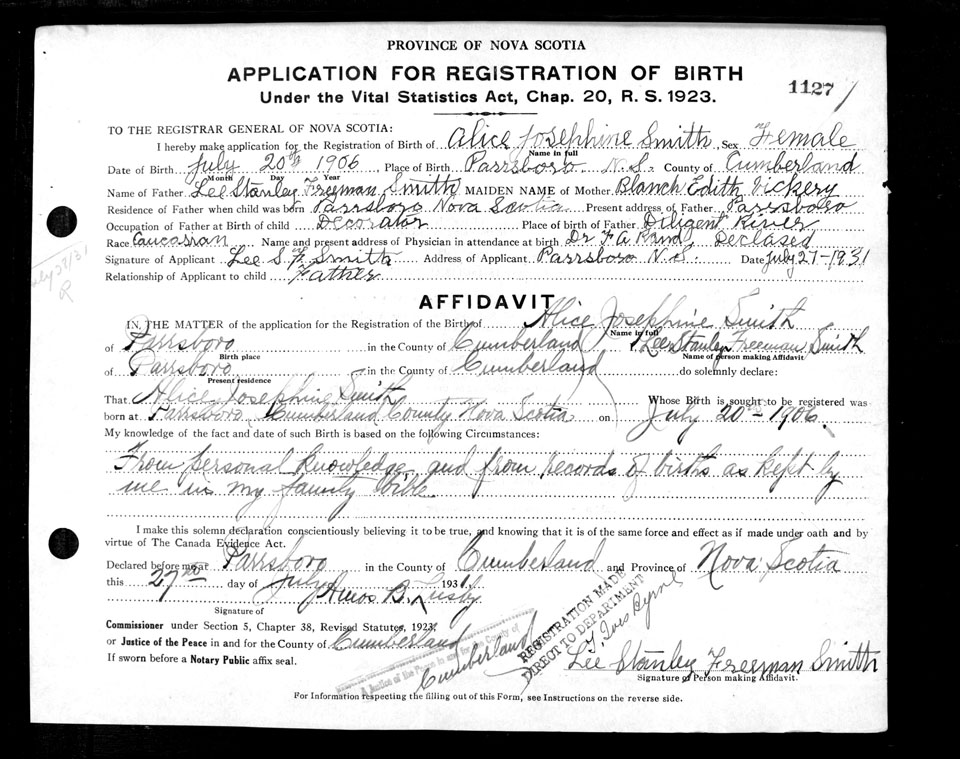 PROVINCE OF NOVA SCOTIA
APPLICATION FOR REGISTRATION OF BIRTH
1127
Under the Vital Statistics Act, Chap. 20, R. S. 1923.
TO THE REGISTRAR GENERAL OF NOVA SCOTIA:
I hereby make application for the Registration of Birth of Alice Josephine Smith Sex Female
Name in full
Date of Birth July 20th 1906 Place of Birth Parrsboro N.S. County of Cumberland
Month Day Year
Name of Father Lee Stanley Freeman Smith MAIDEN NAME of Mother Blanch Edith Vickery
Residence of Father when child was born Parrsboro Nova Scotia Present address of Father Parrsboro
Occupation of Father at Birth of child Decorator Place of birth of Father Diligent River
Race Caucasian Name and present address of Physician in attendance at birth Dr F A Rand, Deceased
Signature of Applicant Lee S. F. Smith Address of Applicant Parrsboro N.S. Date July 27-1931
Relationship of Applicant to child Father
July 27/31
R
AFFIDAVIT
IN THE MATTER of the application for the Registration of the Birth of Alice Josephine Smith
Name in full
of Parrsboro in the County of Cumberland I Lee Stanley Freeman Smith
Birth place Name of person making Affidavit
of Parrsboro in the County of Cumberland do solemnly declare:
Present residence
That Alice Josephine Smith Whose Birth is sought to be registered was
born at Parrsboro, Cumberland County Nova Scotia on July 20th 1906.
My knowledge of the fact and date of such Birth is based on the following Circumstances:
From personal knowledge, and from records of births as kept by
me in my family bible.
I make this solemn declaration conscientiously believing it to be true, and knowing that it is of the same force and effect as if made under oath and by
virtue of The Canada Evidence Act.
Declared before me at Parrsboro in the County of Cumberland and Province of Nova Scotia
this 27th day of July 1931.
Amos B. Lusby
Signature of
Commissioner under Section 5, Chapter 38, Revised Statutes, 1923.
or Justice of the Peace in and for the County of Cumberland
If sworn before a Notary Public affix seal.
A Justice of the Peace in and for the County of
Cumberland
REGISTRATION MADE
DIRECT TO DEPARTMENT
Lee Stanley Freeman Smith
Signature of Person making Affidavit.
For Information respecting the filling out of this Form, see Instructions on the reverse side.